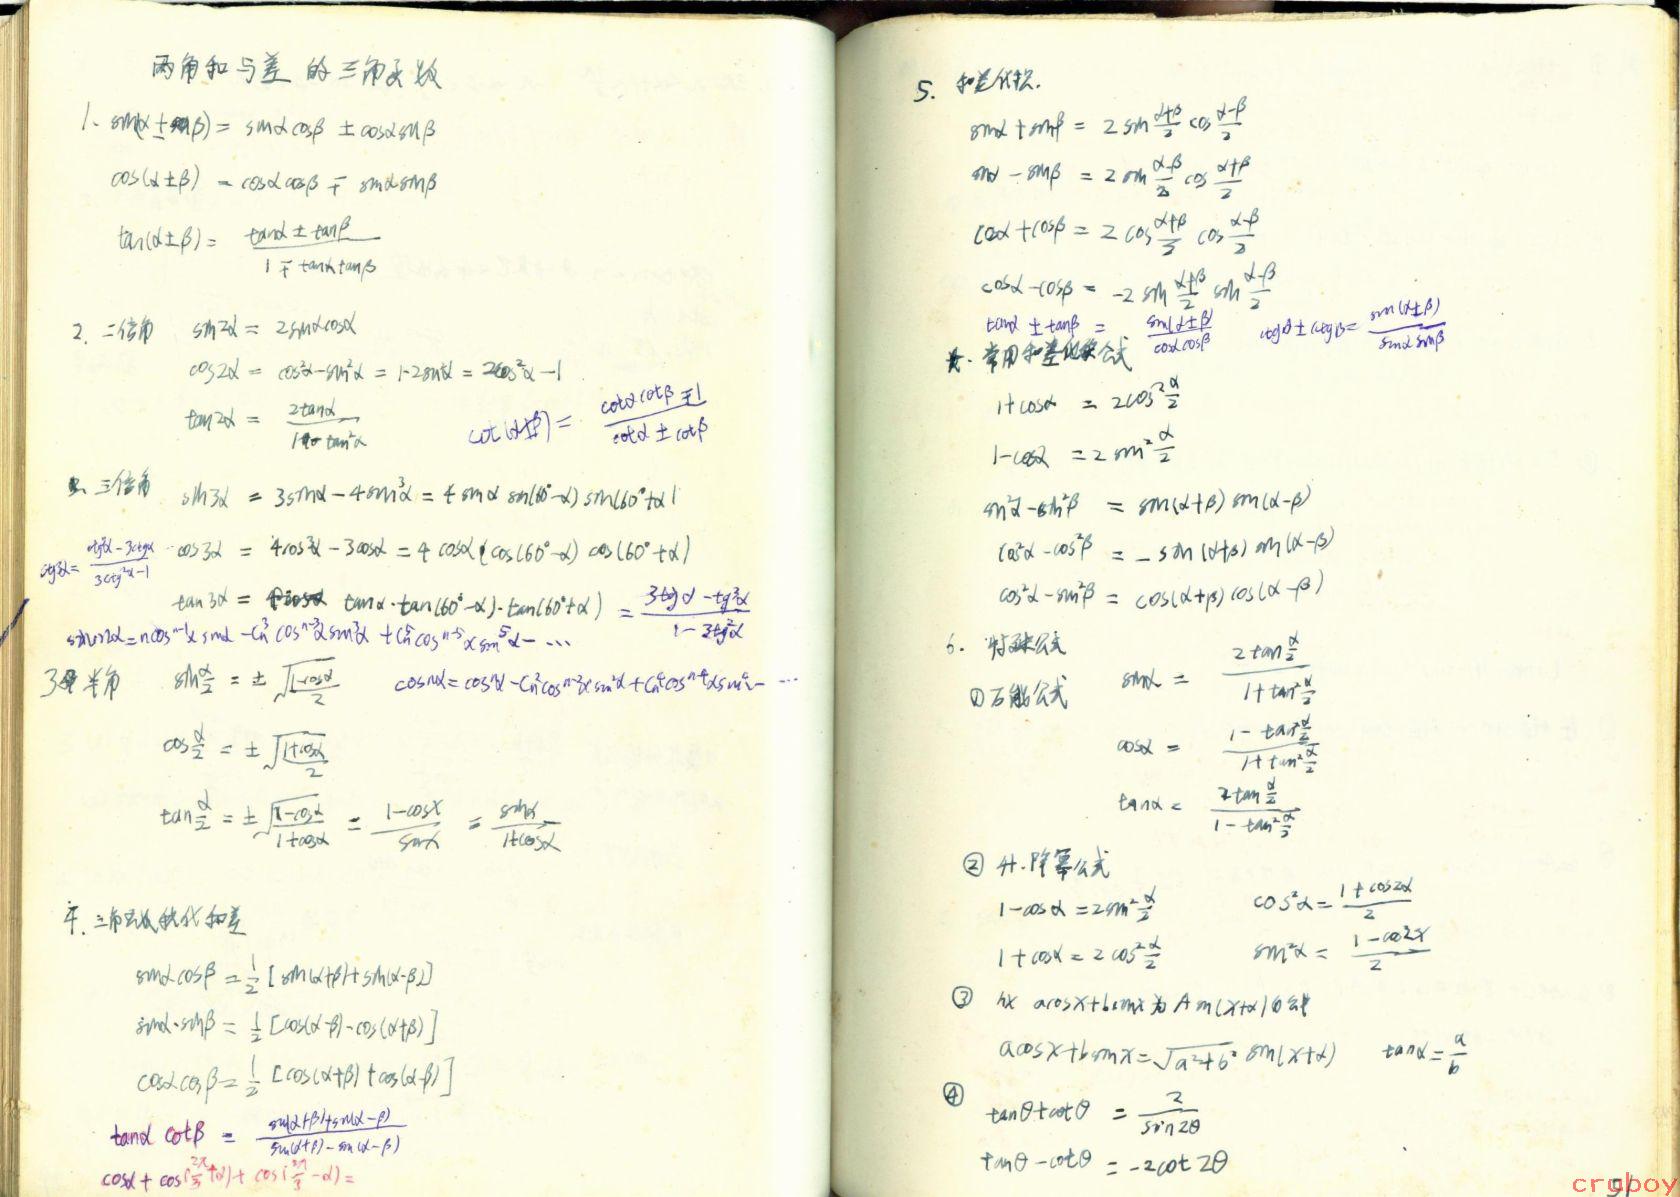 两角和与差的三角函数
1. sin(α±β) = sinαcosβ ± cosαsinβ
cos(α±β) = cosαcosβ ∓ sinαsinβ
tan(α±β) = (tanα ± tanβ)/(1 ∓ tanαtanβ)
2. 二倍角 sin2α = 2sinαcosα
cos2α = cos²α-sin²α = 1-2sin²α = 2cos²α-1
tan2α = 2tanα/(1-tan²α)
cot(α±β) = (cotαcotβ ∓ 1)/(cotα ± cotβ)
三倍角 sin3α = 3sinα-4sin³α = 4sinα sin(60°-α) sin(60°+α)
cos3α = 4cos³α-3cosα = 4cosα cos(60°-α) cos(60°+α)
ctg3α = (ctg³α-3ctgα)/(3ctg²α-1)
tan3α = tanα·tan(60°-α)·tan(60°+α) = (3tgα-tg³α)/(1-3tg²α)
sinnα = ncosⁿ⁻¹α sinα - Cn³cosⁿ⁻³αsin³α + Cn⁵cosⁿ⁻⁵αsin⁵α-…
3 半角 sin α/2 = ±√((1-cosα)/2)
cosnα = cosⁿα-Cn²cosⁿ⁻²αsin²α+Cn⁴cosⁿ⁻⁴αsin⁴α-…
cos α/2 = ±√((1+cosα)/2)
tan α/2 = ±√((1-cosα)/(1+cosα)) = (1-cosα)/sinα = sinα/(1+cosα)
4. 三角函数积化和差
sinαcosβ = 1/2[sin(α+β)+sin(α-β)]
sinα·sinβ = 1/2[cos(α-β)-cos(α+β)]
cosαcosβ = 1/2[cos(α+β)+cos(α-β)]
tanα cotβ = (sin(α+β)+sin(α-β))/(sin(α+β)-sin(α-β))
cosα + cos(2π/3+α) + cos(2π/3-α) =
5. 和差化积.
sinα+sinβ = 2sin (α+β)/2 cos (α-β)/2
sinα-sinβ = 2sin (α-β)/2 cos (α+β)/2
cosα+cosβ = 2cos (α+β)/2 cos (α-β)/2
cosα-cosβ = -2sin (α+β)/2 sin (α-β)/2
tanα ± tanβ = sin(α±β)/(cosαcosβ)
ctgβ±ctgβ = sin(α±β)/(sinαsinβ)
常用和差化积公式
1+cosα = 2cos² α/2
1-cosα = 2sin² α/2
sin²α-sin²β = sin(α+β)sin(α-β)
cos²α-cos²β = -sin(α+β)sin(α-β)
cos²α-sin²β = cos(α+β)cos(α-β)
6. 特殊公式
①万能公式 sinα = 2tan α/2 /(1+tan² α/2)
cosα = (1-tan² α/2)/(1+tan² α/2)
tanα = 2tan α/2 /(1-tan² α/2)
② 升.降幂公式
1-cosα = 2sin² α/2 cos²α = (1+cos2α)/2
1+cosα = 2cos² α/2 sin²α = (1-cos2α)/2
③ acosx+bsinx为Asin(x+α)
acosx+bsinx = √(a²+b²) sin(x+α) tanα = a/b
④ tanθ+cotθ = 2/sin2θ
tanθ-cotθ = -2cot2θ
cruboy